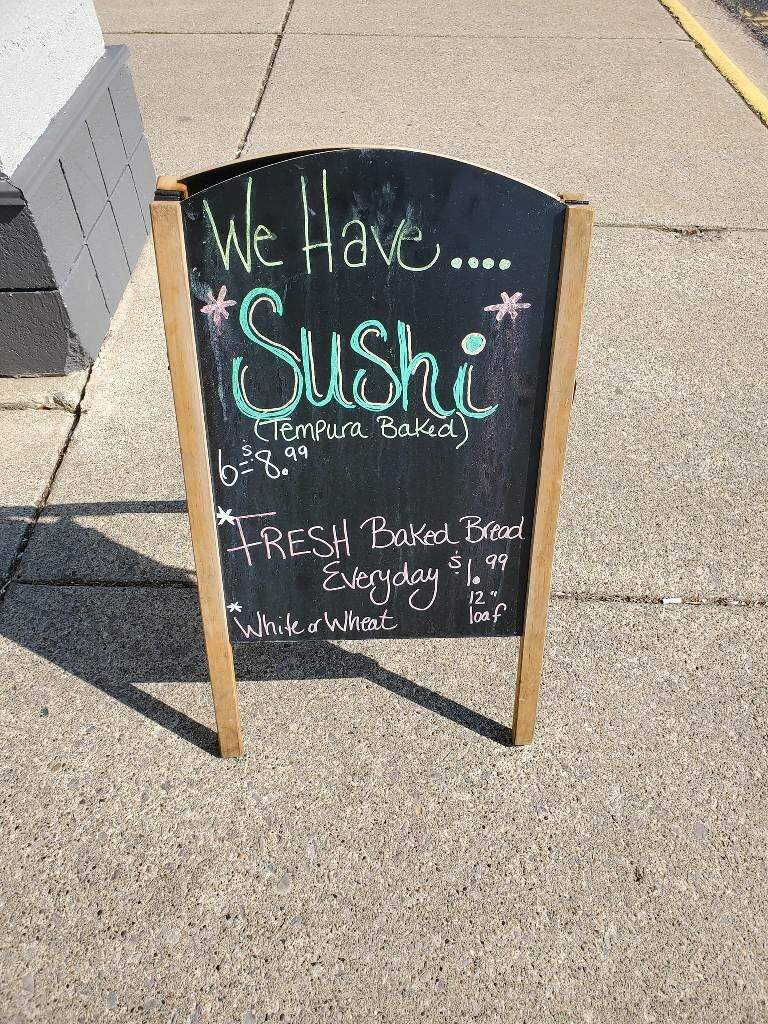 We Have....
*Sushi*
(Tempura Baked)
6=$8.99
*FRESH Baked Bread
Everyday $1.99
12" loaf
*White or Wheat